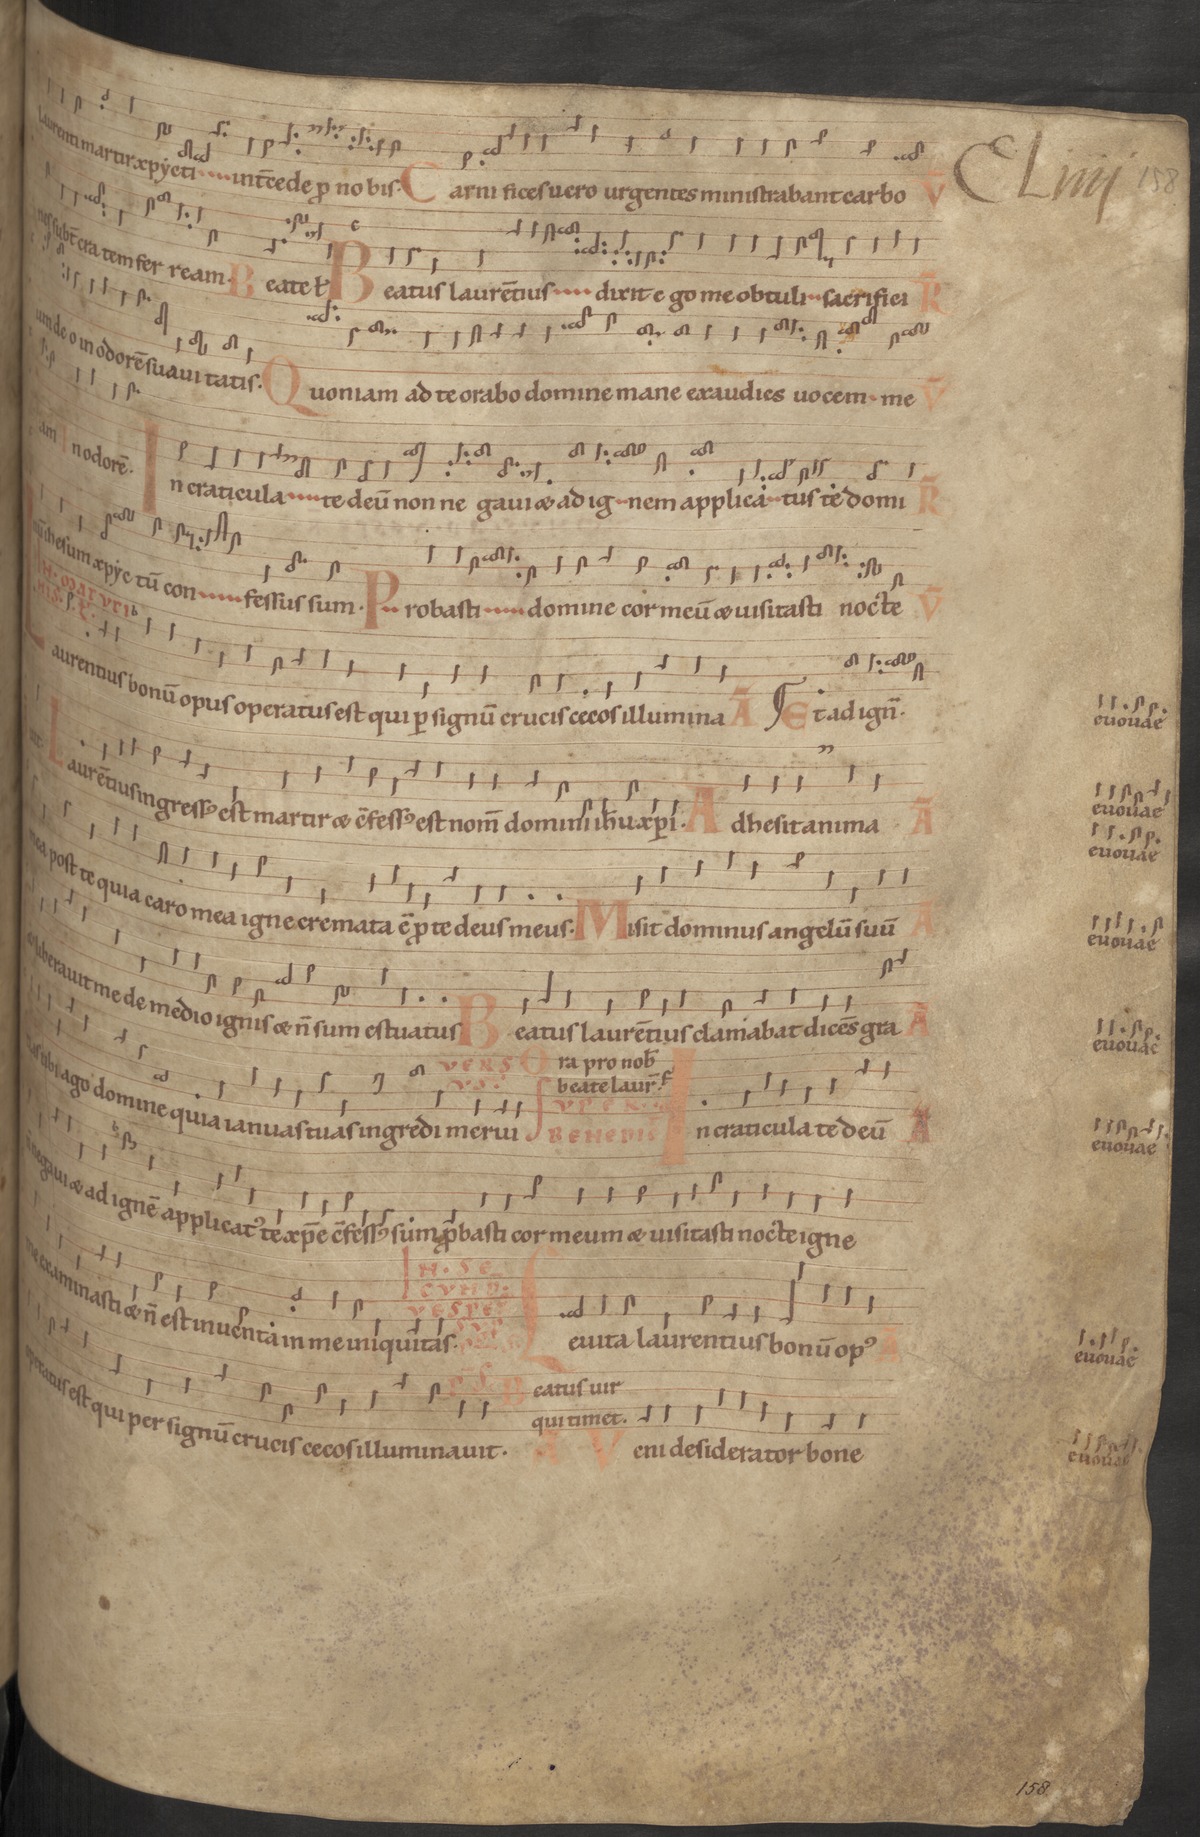 Laurenti martir xp̄ycti intc̄ede ꝓ no bis. Carni fices uero urgentes ministrabant carbo V̄
CLiiij 158
nes subt̄ cra tem fer ream. B eate l̄ Beatus laurētius dixit e go me obtuli sacrifici R̄
um deo in odorē suaui tatis. Quoniam ad te orabo domine mane exaudies uocem me V̄
am In odorē.
In craticula te deū non ne gaui & ad ig nem applica tus te domi R̄
num ihesum xp̄ye tū con fessus sum. Probasti domine cor meū & uisitasti nocte V̄
IN MATVTI
NIS.
Laurentius bonū opus operatus est qui ꝑ signū crucis cecos illumina Ā Et ad ignē.
euouae
uit Laurētius ingressꝰ est martir & c̄fessꝰ est nom̄ domini ih̄u xp̄i. Adhesit anima Ā
euouae
euouae
mea post te quia caro mea igne cremata ē ꝓ te deus meus. Misit dominus angelū suū A
euouae
et liberauit me de medio ignis & n̄ sum estuatus Beatus laurētius clamabat dicēs gra A
euouae
VERS Ora pro nob̄
beate laur̄.
tias tibi ago domine quia ianuas tuas ingredi merui SVPER
BENEDIC̄ In craticula te deū A
euouae
n negaui & ad ignē applicatꝰ te xp̄e c̄fessꝰ sum ꝓbasti cor meum & uisitasti nocte igne
IN. SE
CVND.
VESPER
me examinasti & n̄ est inuenta in me iniquitas. Leuita laurentius bonū opꝰ A
euouae
Ps. Beatus uir
qui timet.
operatus est qui per signū crucis cecos illuminauit. A Veni desiderator bone
euouae
158